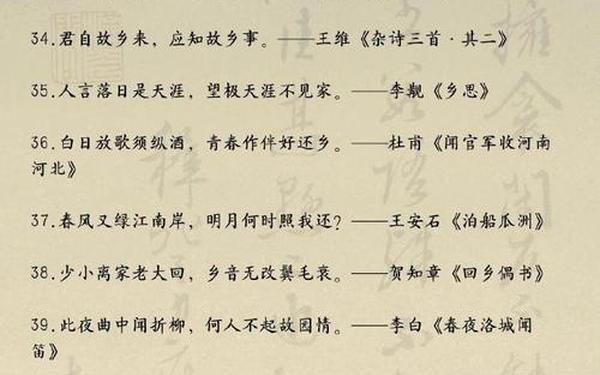 34.君自故乡来，应知故乡事。——王维《杂诗三首·其二》
35.人言落日是天涯，望极天涯不见家。——李觏《乡思》
36.白日放歌须纵酒，青春作伴好还乡。——杜甫《闻官军收河南
河北》
37.春风又绿江南岸，明月何时照我还？——王安石《泊船瓜洲》
38.少小离家老大回，乡音无改鬓毛衰。——贺知章《回乡偶书》
39.此夜曲中闻折柳，何人不起故园情。——李白《春夜洛城闻
笛》